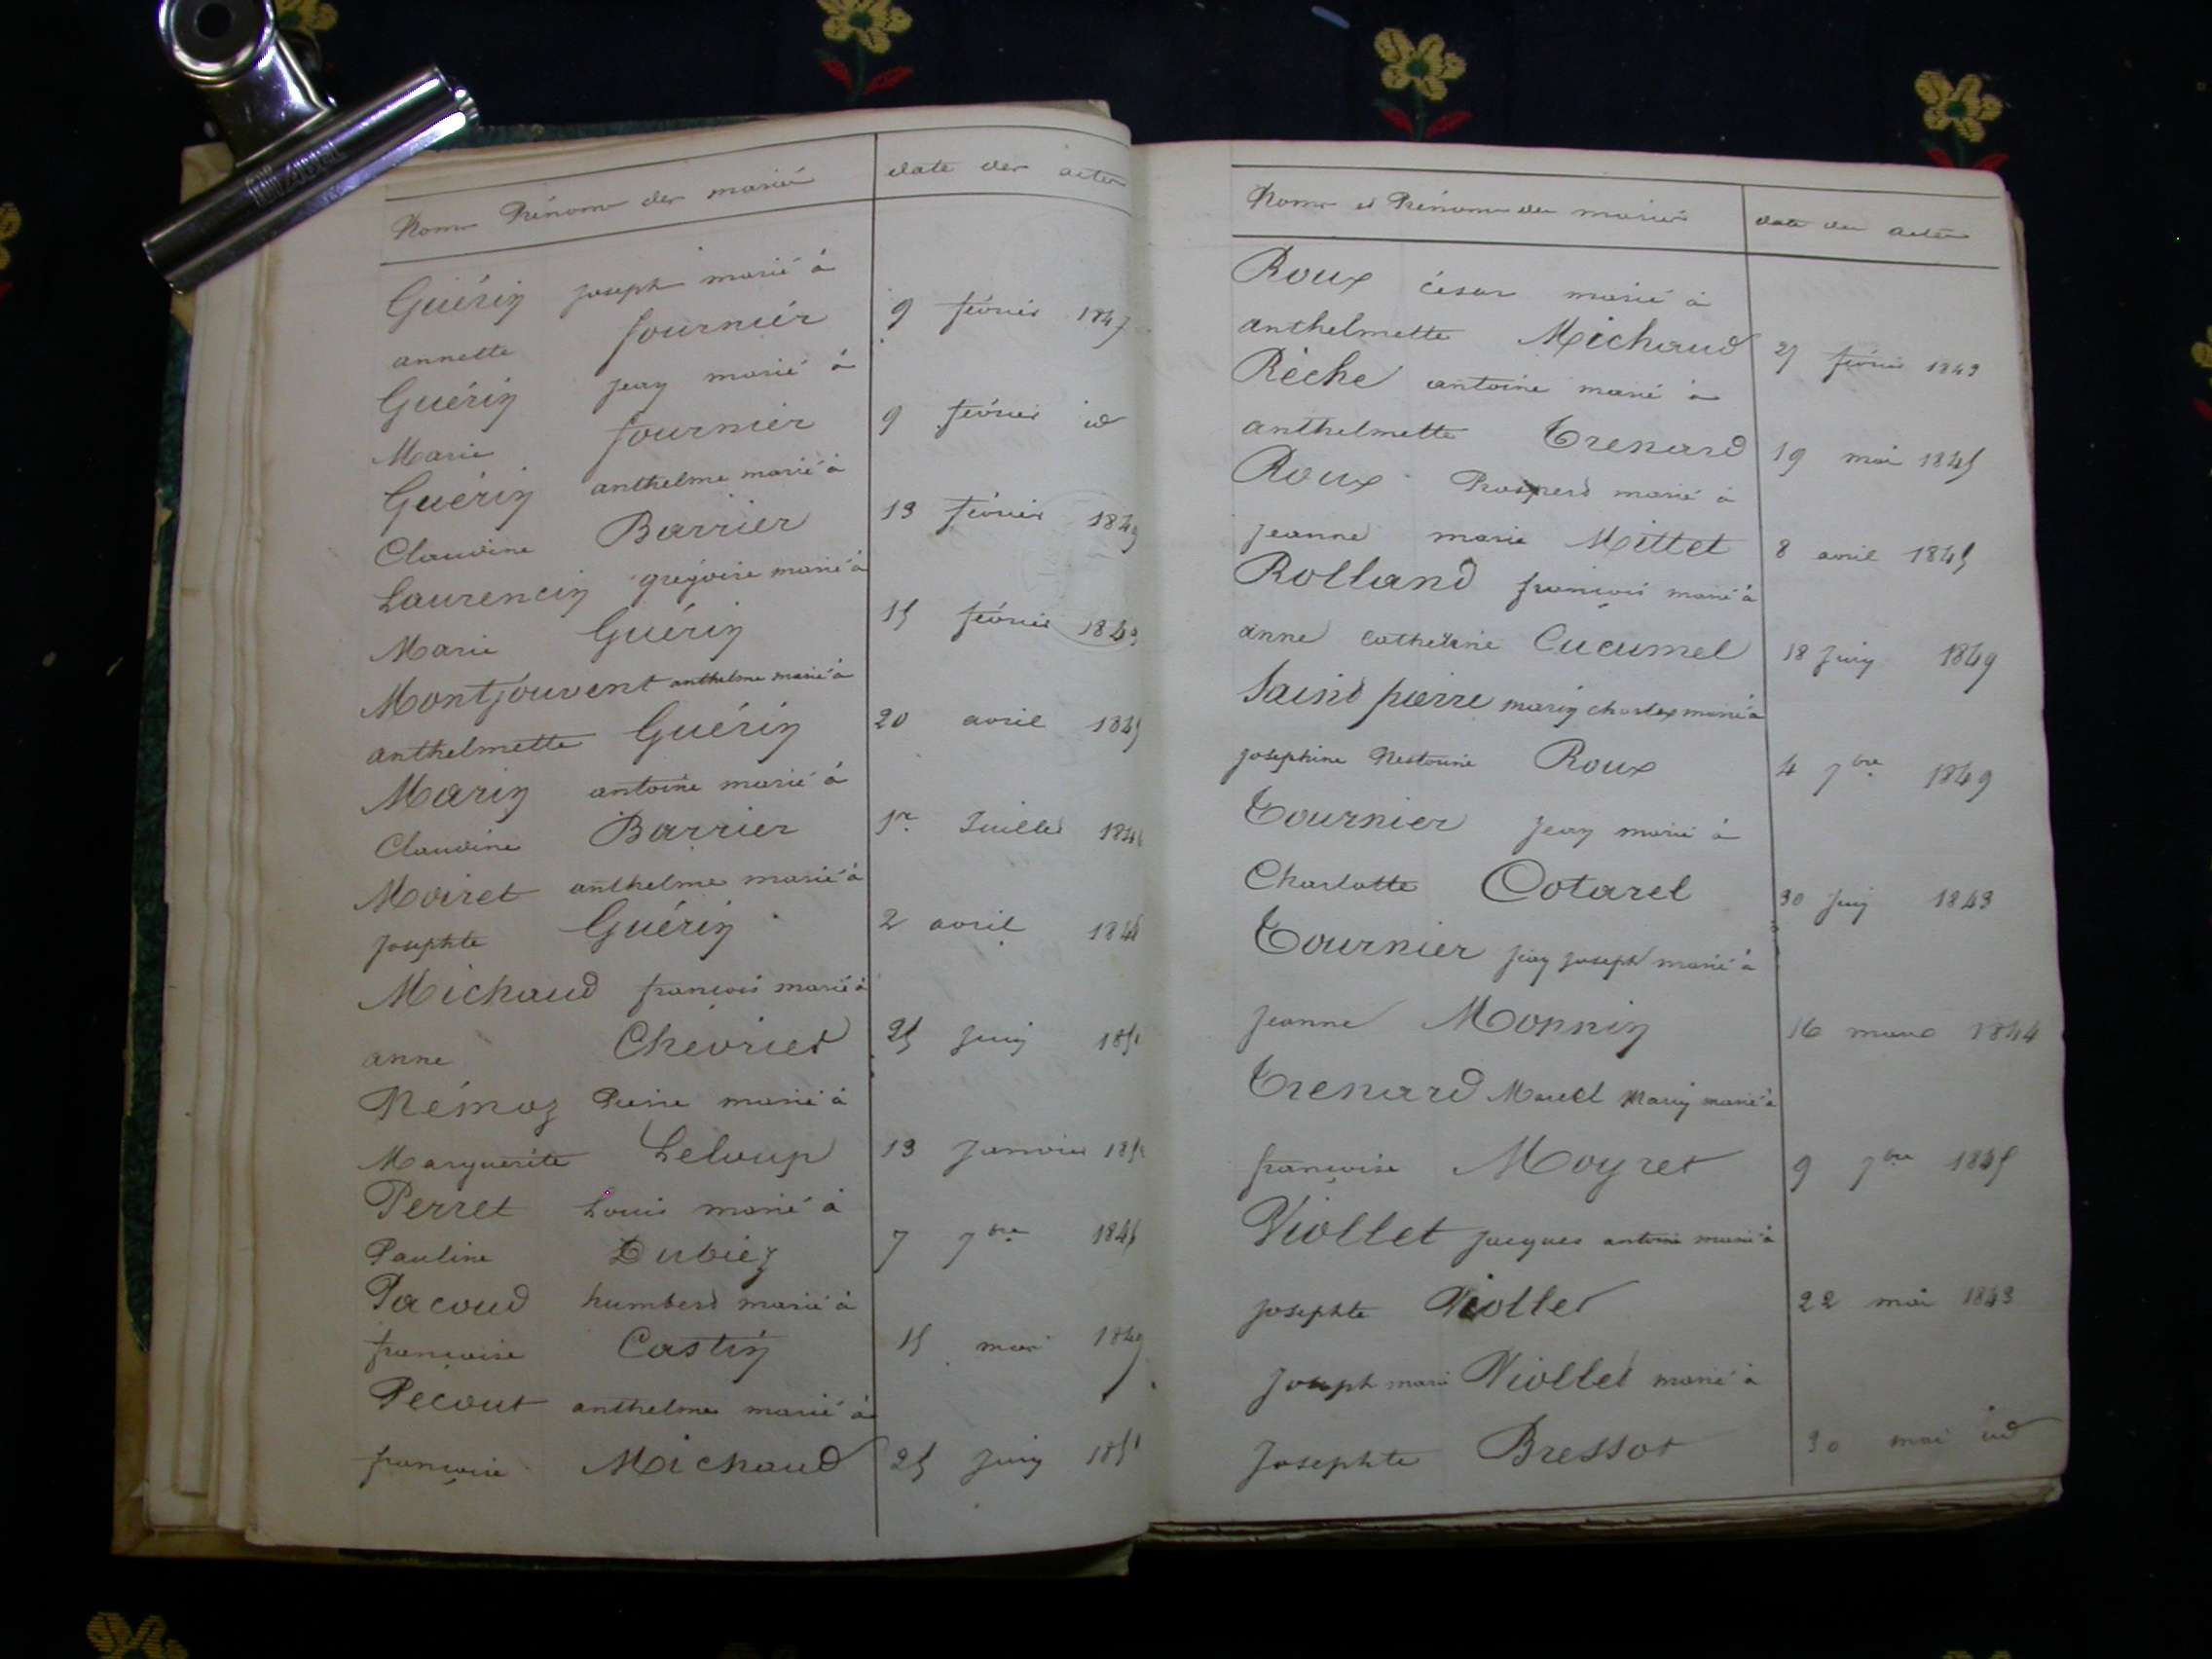 Noms Prénoms des mariés date des actes
Guérin joseph marié à
annette fournier 9 février 1847
Guérin jean marié à
Marie fournier 9 février id
Guérin anthelme marié à
Claudine Barrier 13 février 1849
Laurencin grégoire marié à
Marie Guérin 15 février 1849
Montjouvent anthelme marié à
anthelmette Guérin 20 avril 1845
Marin antoine marié à
Claudine Barrier 1r Juillet
Moiret anthelme marié à
josephte Guérin 2 avril
Michaud françois marié à
anne Chevrier 25 juin 1851
Némoz Pierre marié à
Marguerite Leloup 13 janvier
Perret Louis marié à
Pauline Dubiez 7 7bre 1845
Pacoud humbert marié à
françoise Castin 15 mai 1849
Pecout anthelme marié à
françoise Michaud 25 juin 1851
Noms et Prénoms des mariés date des actes
Roux césar marié à
anthelmette Michaud 27 février 1843
Rèche antoine marié à
anthelmette Trenard 19 mai 1845
Roux Prosperd marié à
jeanne marie Mittet 8 avril 1845
Rolland françois marié à
anne catherine Cucumel 18 juin 1849
Saint pierre marin charles marié à
josephine Nestorine Roux 4 7bre 1849
Tournier jean marié à
Charlotte Cotarel 30 juin 1843
Tournier jean joseph marié à
jeanne Monnin 16 mars 1844
Trenard Marcel Marin marié à
françoise Moyret 9 7bre 1845
Viollet jacques antoine marié à
josephte Viollet 22 mai 1843
joseph marie Viollet marié à
Josephte Bressot 30 mai id